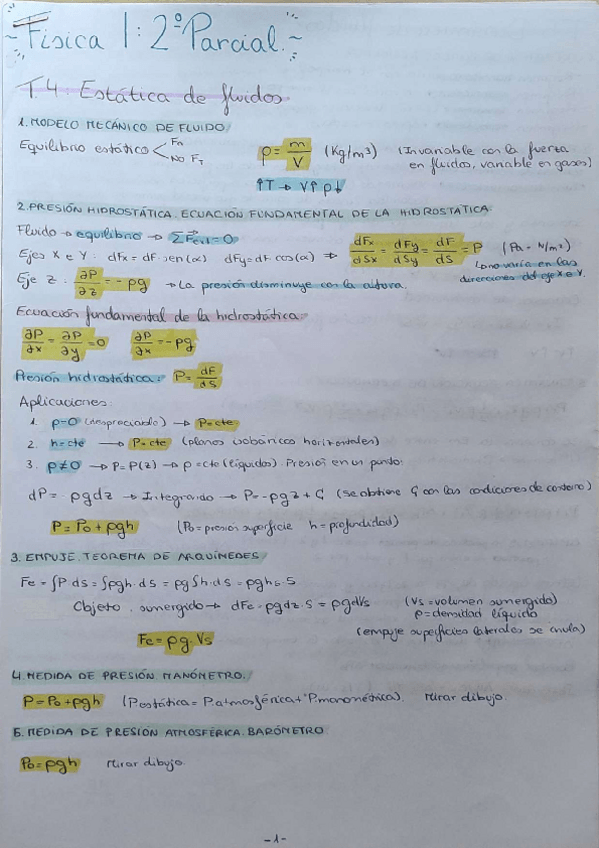 ~Física 1: 2º Parcial.~
T.4. Estática de fluidos
1. MODELO MECÁNICO DE FLUIDO
Equilibrio estático < Fn
NO FT
ρ = m/V (Kg/m³) (Invariable con la fuerza
en fluidos, variable en gases)
↑T → V↑ ρ↓
2. PRESIÓN HIDROSTÁTICA. ECUACIÓN FUNDAMENTAL DE LA HIDROSTÁTICA
Fluido → equilibrio → ΣFext = 0
Ejes X e Y: dFx = dF·sen(α) dFy = dF cos(α) ⇒ dFx/dSx = dFy/dSy = dF/dS = P (Pa = N/m²)
↳ no varía en las
direcciones del eje X e Y.
Eje z: ∂P/∂z = -ρg → La presión disminuye con la altura.
Ecuación fundamental de la hidrostática
∂P/∂x = ∂P/∂y = 0 ∂P/∂x = -ρg
Presión hidrostática: P = dF/dS
Aplicaciones:
1. ρ=0 (despreciable) → P=cte
2. h=cte → P=cte (planos isobáricos horizontales)
3. ρ≠0 → P=P(z) → ρ=cte (líquidos). Presión en un punto:
dP = -ρgdz → Integrando → P=-ρgz + C₁ (se obtiene C₁ con las condiciones de contorno)
P = P₀ + ρgh (P₀ = presión superficie h = profundidad)
3. EMPUJE. TEOREMA DE ARQUÍMEDES
Fe = ∫P·ds = ∫ρgh·ds = ρg∫h·ds = ρgh₆·S
Objeto sumergido → dFe = ρgdz·S = ρgdVs (Vs = volumen sumergido)
ρ = densidad líquido
Fe = ρg·Vs (empuje superficies laterales se anula)
4. MEDIDA DE PRESIÓN. MANÓMETRO.
P = P₀ + ρgh (P.estática = P.atmosférica + P.manométrica). Mirar dibujo.
5. MEDIDA DE PRESIÓN ATMOSFÉRICA. BARÓMETRO
P₀ = ρgh Mirar dibujo.
-1-